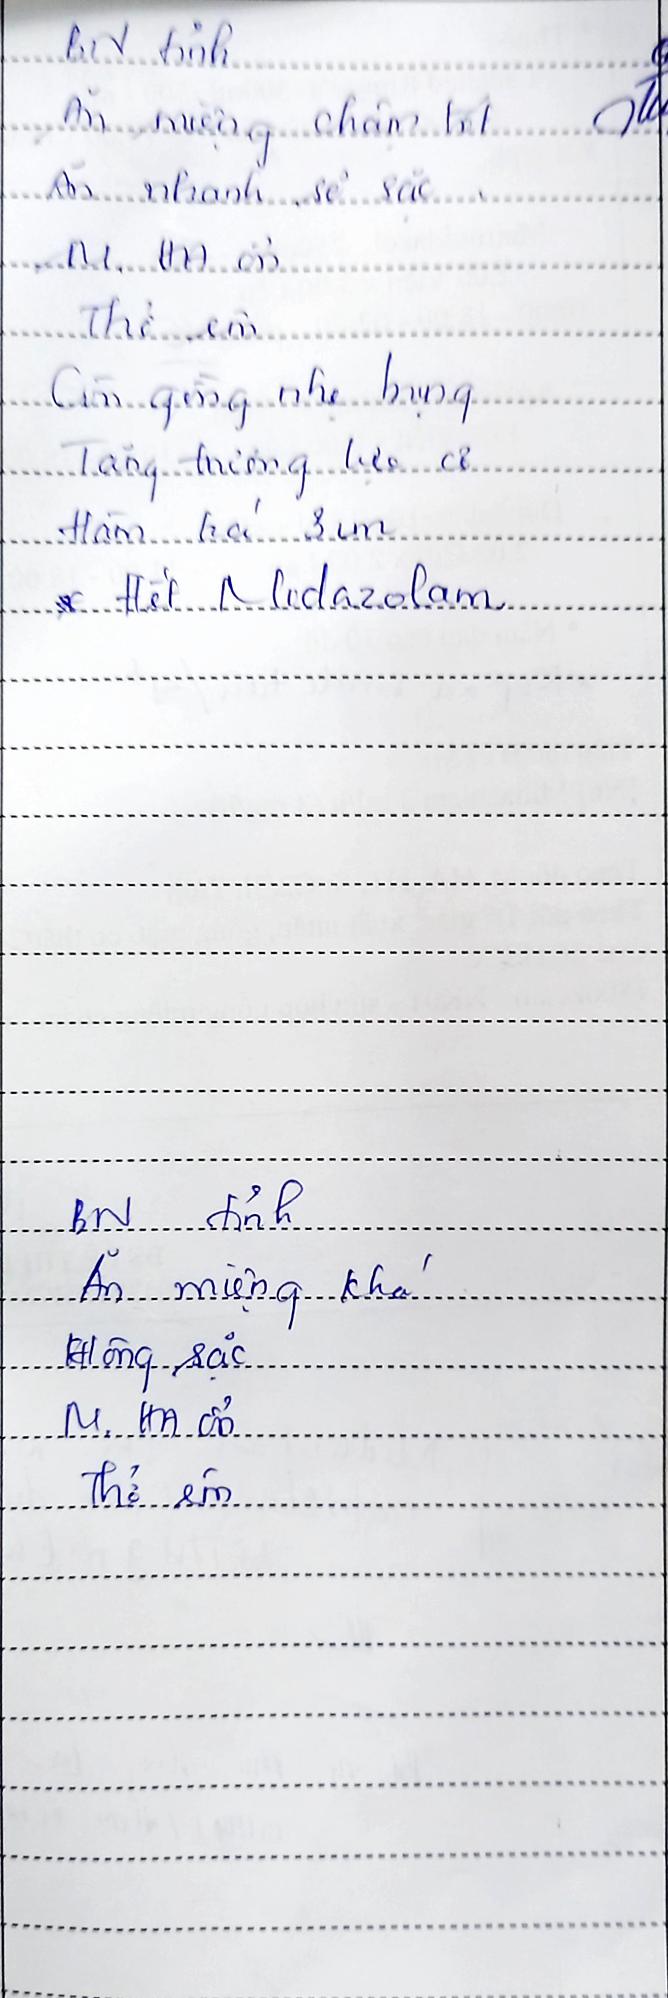 BN tỉnh
Ăn miệng chậm tốt
Ăn nhanh sẽ sặc
M, HA ổn
Thở êm
Còn gồng nhẹ bụng
Tăng trương lực cơ
Hàm há 3 cm
* Hết Midazolam
BN tỉnh
Ăn miệng khá
Không sặc
M, HA ổn
Thở êm